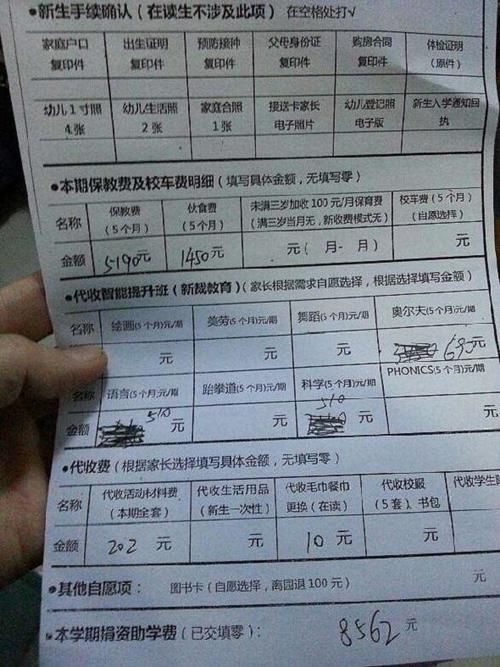 ●新生手续确认（在读生不涉及此项）在空格处打√
家庭户口复印件 出生证明复印件 预防接种复印件 父母身份证复印件 购房合同复印件 体检证明（原件）
幼儿1寸照4张 幼儿生活照2张 家庭合照1张 接送卡家长电子照片 幼儿登记照电子版 新生入学通知回执
●本期保教费及校车费明细（填写具体金额，无填写零）
名称 保教费（5个月） 伙食费（5个月） 未满三岁加收100元/月保育费（满三岁当月无，新收费模式无） 校车费（5个月）（自愿选择）
金额 5190元 1450元 元（ 月- 月） 元
●代收智能提升班（新裁教育）（家长根据需求自愿选择，根据选择填写金额）
名称 绘画(5个月)元/期 美劳(5个月)元/期 舞蹈(5个月)元/期 奥尔夫(5个月)元/期
元 元 元 690元
名称 语言(5个月)元/期 跆拳道(5个月)元/期 科学(5个月)元/期 PHONICS(5个月)元/期
金额 510 元 元 510 元 元
●代收费（根据家长选择填写具体金额，无填写零）
名称 代收活动材料费（本期全套） 代收生活用品（新生一次性） 代收毛巾餐巾更换（在读） 代收校服（5套）、书包 代收学生
金额 202 元 元 10 元 元
●其他自愿项： 图书卡（自愿选择，离园退100元） 元
●本学期捐资助学费（已交填零）： 8562元